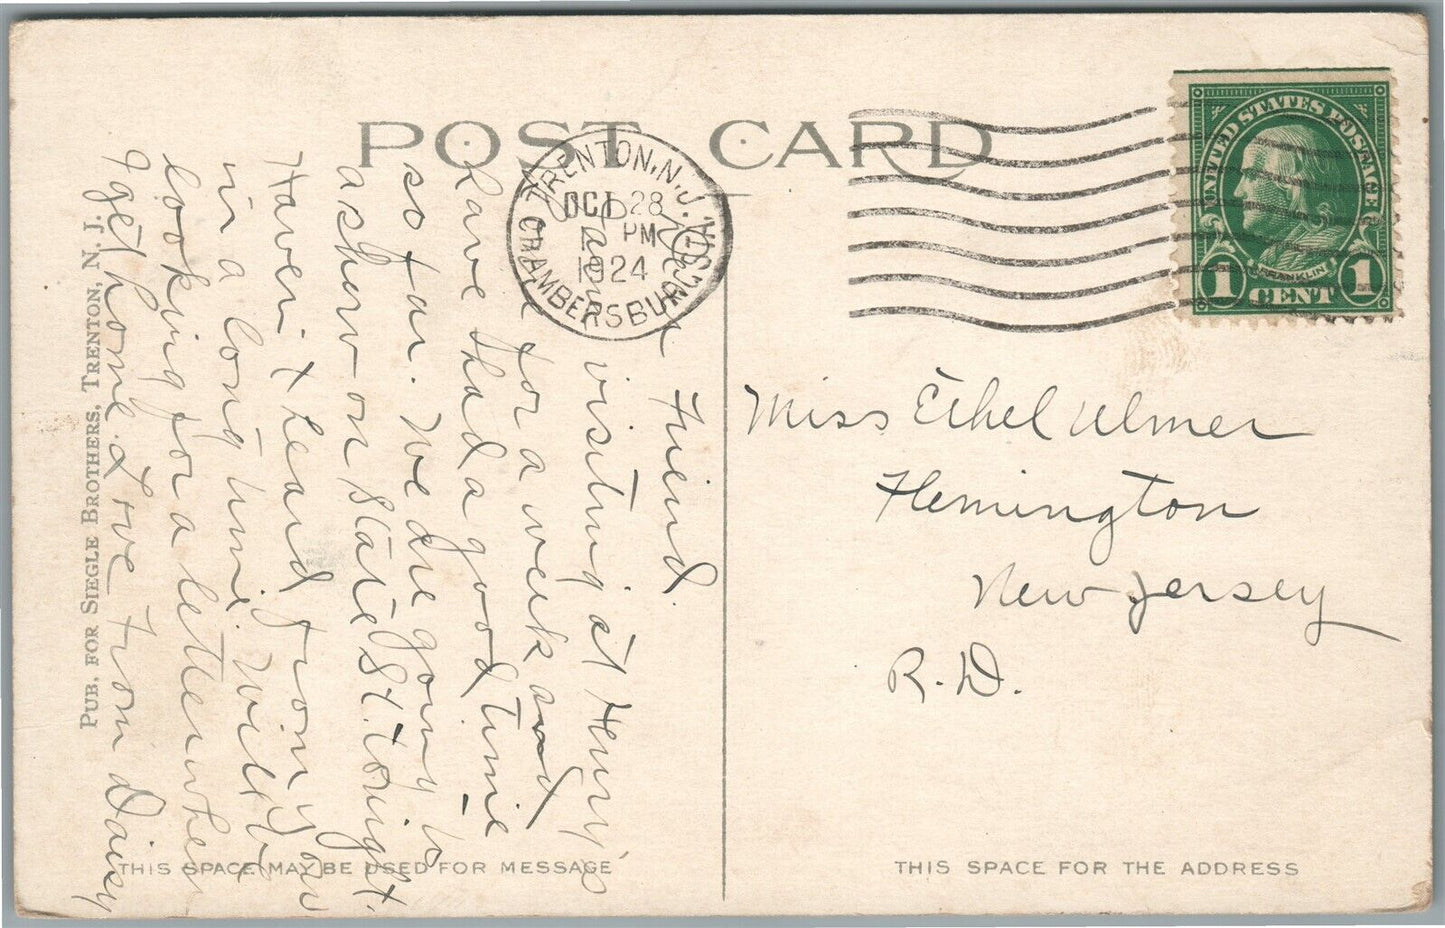 POST CARD
TRENTON, N. J.
OCT 28
PM
1924
CHAMBERSBURG STA.
UNITED STATES POSTAGE
FRANKLIN
1 CENT 1
Dear Friend.
I am visiting at Henry's
for a week and
have had a good time
so far. We are going to
a show on State St. tonight.
Haven't heard from you
in a long time. Will be
looking for a letter when
I get home. Love From Daisy
PUB. FOR SIEGLE BROTHERS, TRENTON, N. J.
THIS SPACE MAY BE USED FOR MESSAGE
Miss Ethel Ulmer
Flemington
New Jersey
R. D.
THIS SPACE FOR THE ADDRESS